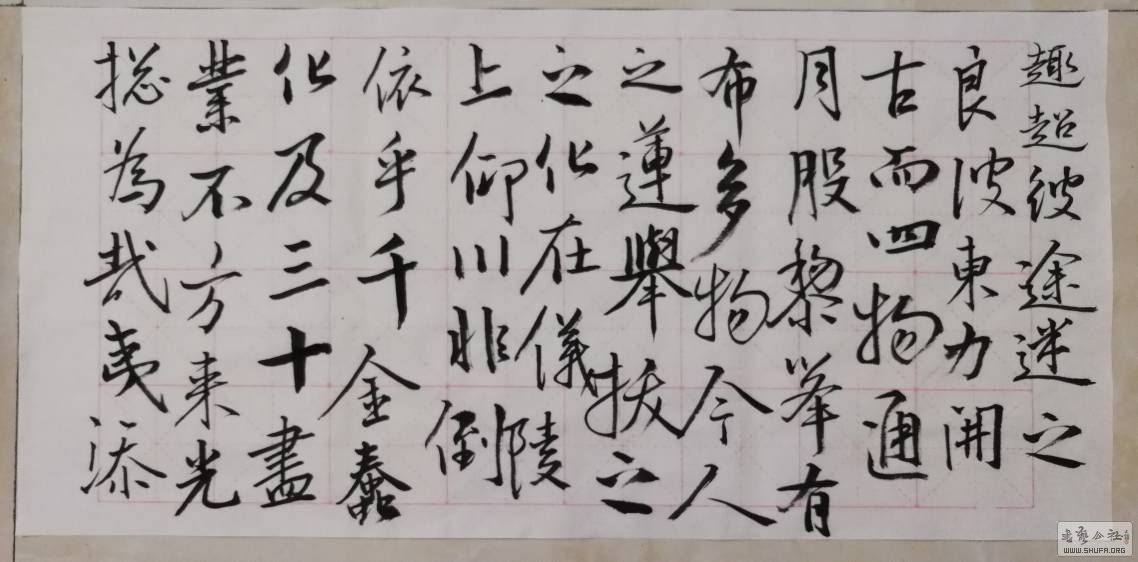 趣超彼途迷之
良波東力開
古而四物通
月股黎举有
布多物今人
之蓮舉拔之
之化在儀陵
上仰川非倒
依乎千金蠢
化及三十盡
業不方来光
揔為哉夷添
书艺公社
WWW.SHUFA.ORG